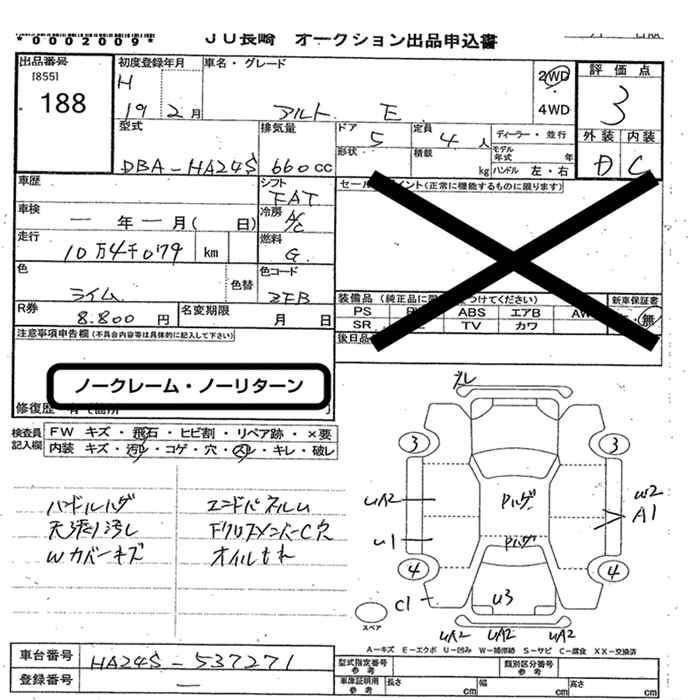 *0002009*
JU長崎 オークション出品申込書
出品番号
[855]
188
初度登録年月
H
19 2月
車名・グレード
アルト E
2WD
4WD
評価点
3
型式
DBA-HA24S
排気量
660cc
ドア
5
形状
定員
4人
積載
kg
ディーラー・並行
モデル年式 年
ハンドル 左・右
外装 内装
D C
車歴
シフト
FAT
セールスポイント(正常に機能するものに限ります)
車検
一年一月( 日)
冷房
A/C
走行
10万4千079 km
燃料
G
色
ライム
色替
色コード
ZFB
R券
8.800円
名変期限
月 日
装備品
つけてください)
新車保証書
PS
ABS
エアB
AW
無
SR
TV
カワ
後日品
注意事項申告欄(不具合内容等は具体的に記入して下さい)
ノークレーム・ノーリターン
修復歴
検査員記入欄
FW キズ・飛石・ヒビ割・リペア跡・×要
内装 キズ・汚れ・コゲ・穴・スレ・キレ・破レ
ハンドルハゲ
天張り汚レ
Wカバーキズ
エンドパネルU
オイルもれ
3
3
UA2
U1
Pハゲ
Pハゲ
W2
A1
4
4
C1
U3
UA2 UA2 UA2
スペア
A-キズ E-エクボ U-凹み W-補修跡 S-サビ C-腐食 XX-交換済
車台番号
HA24S-537271
登録番号
一
型式指定番号
参考
類別区分番号
参考
車庫証明用
参考
長さ cm
幅 cm
高さ cm